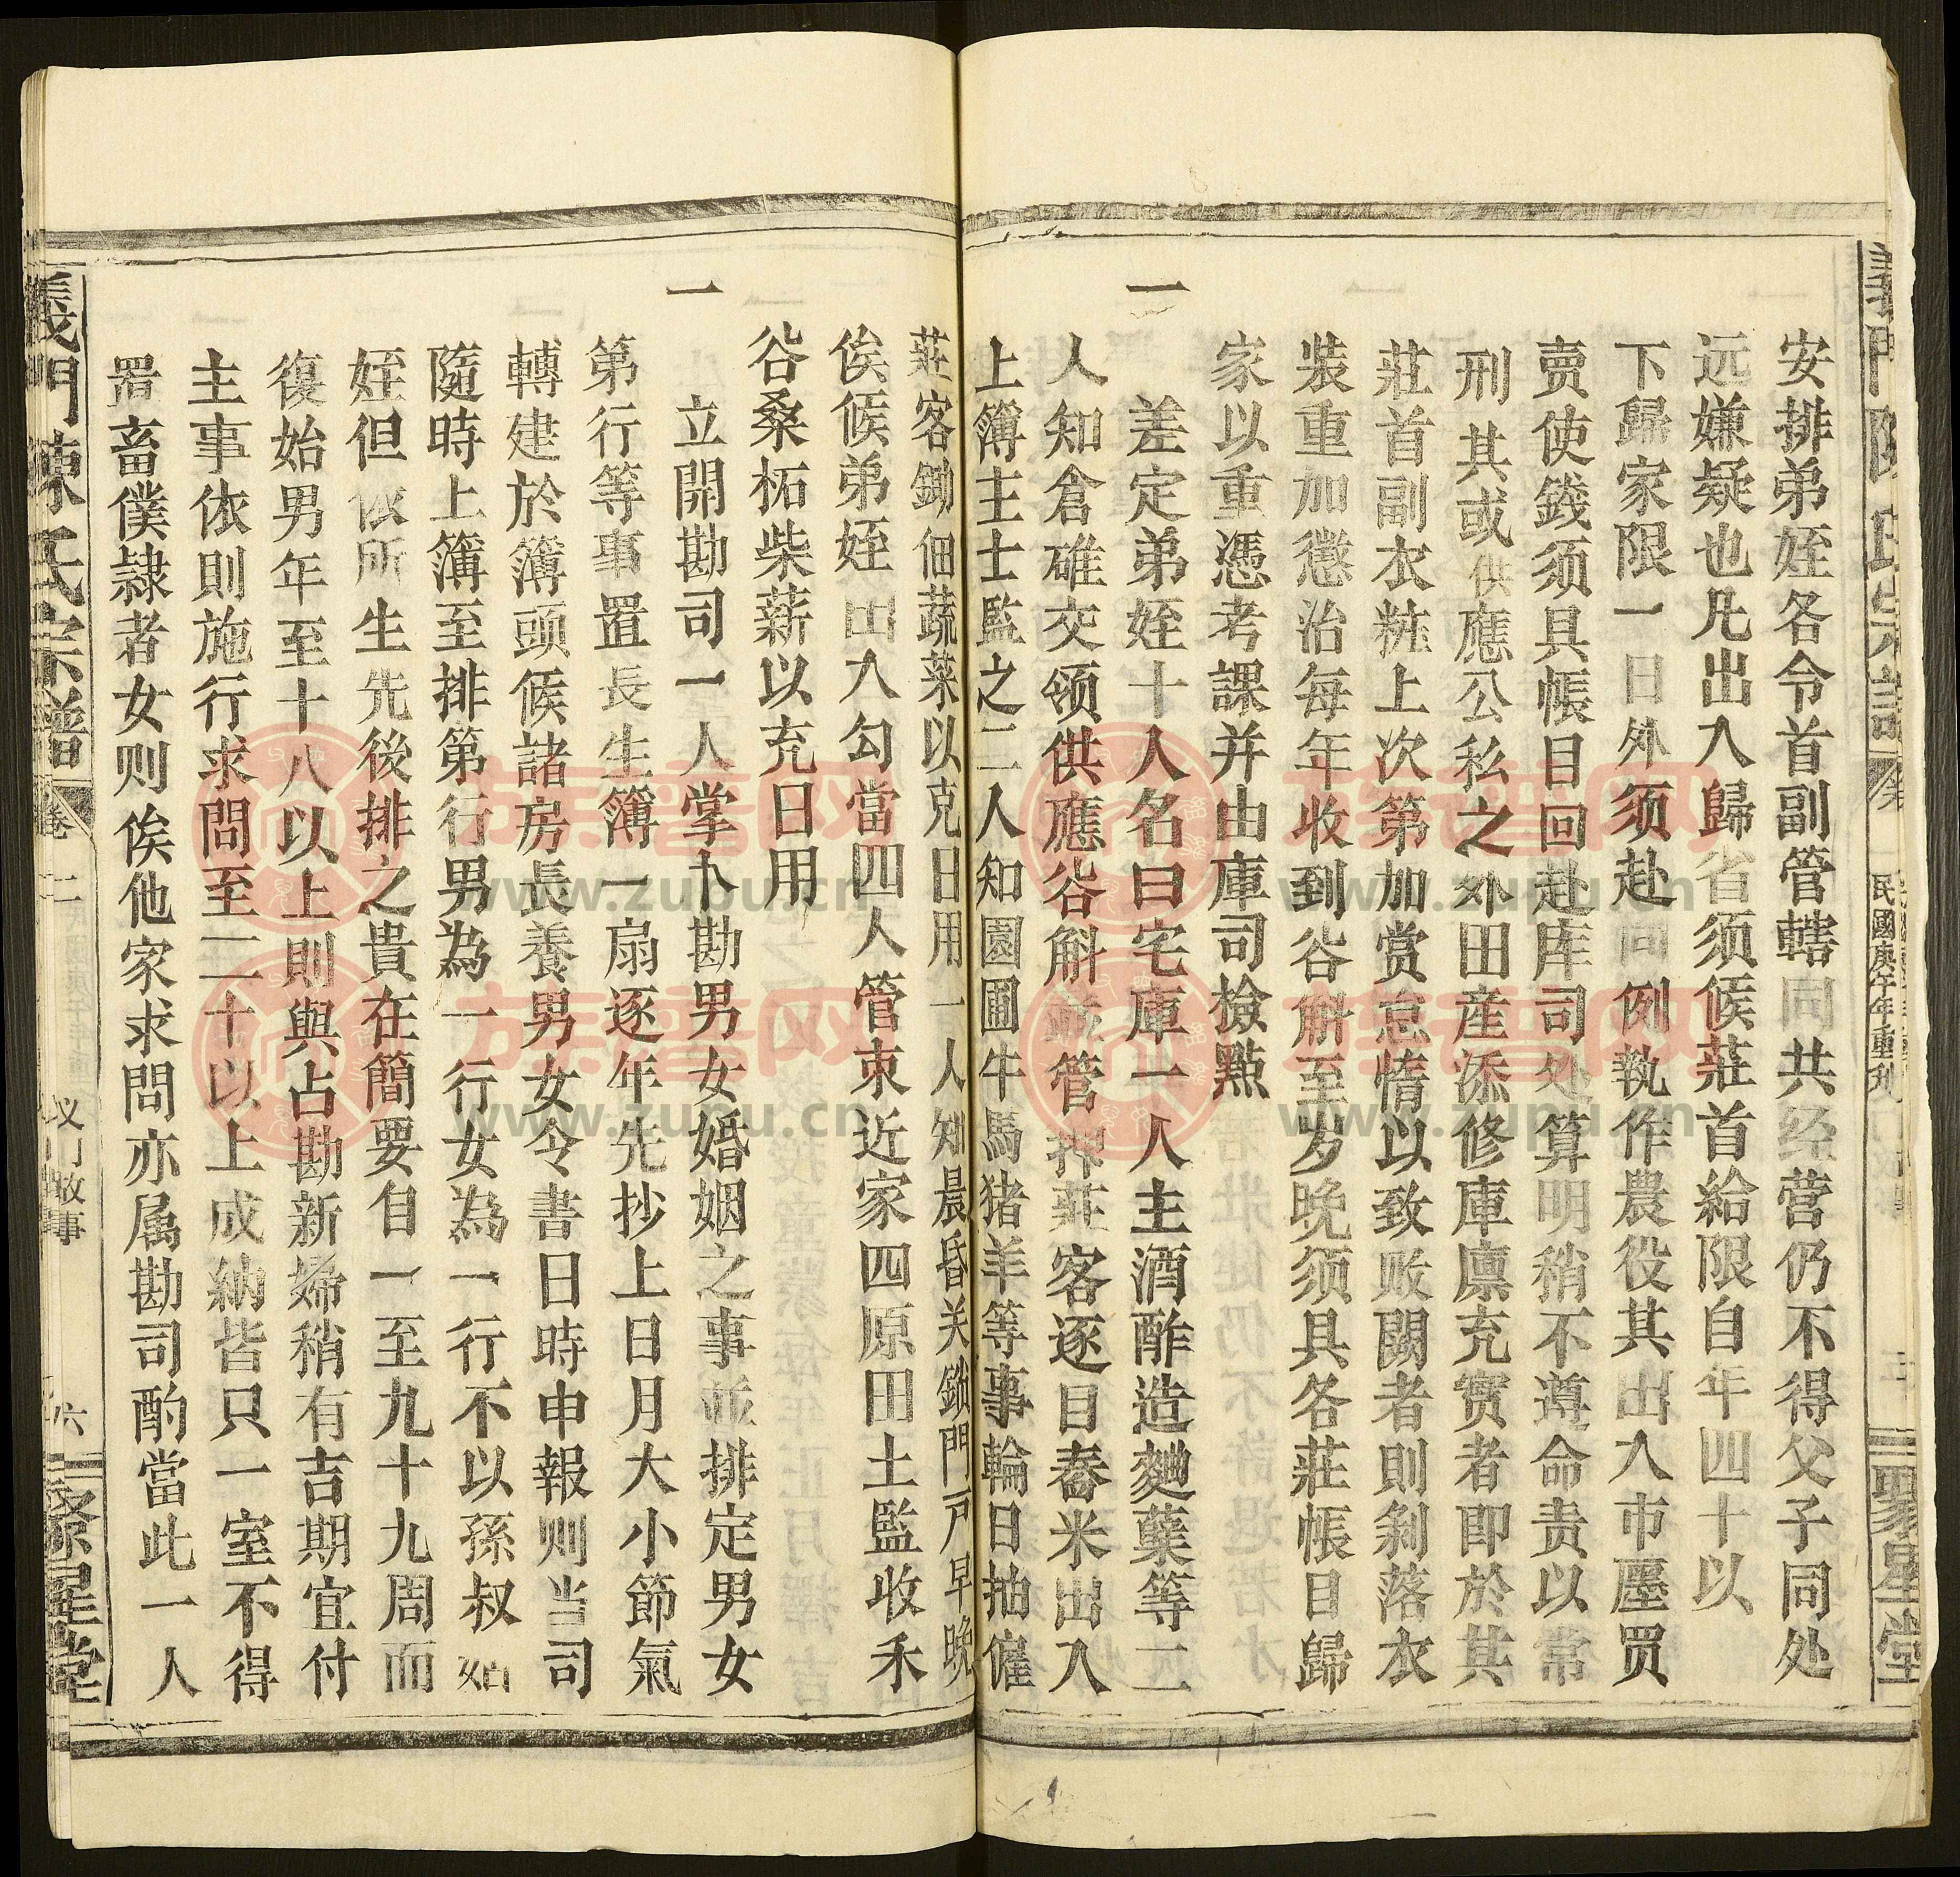 義門陳氏宗譜
民國庚午年重刊
聚星堂
安排弟姪各令首副管轄同共经营仍不得父子同处
远嫌疑也凡出入歸省须候莊首給限自年四十以
下歸家限一日外须赴同例執作農役其出入市廛买
卖使錢须具帳目回赴库司处算明稍不遵命责以常
刑其或供應公私之外田産添修庫廪充實者即於其
莊首副衣粧上次第加赏怠惰以致败闕者則剝落衣
装重加懲治每年收到谷斛至岁晚须具各莊帳目歸
家以重憑考課并由庫司檢點
一
差定弟姪十人名曰宅庫一人主酒酢造麯蘖等二
人知倉碓交领供應谷斛管押莊客逐目舂米出入
上簿主士監之二人知園圃牛馬猪羊等事輪日抽僱
莊客鋤佃蔬菜以克日用一人知晨昏关鎖門户早晚
俟候弟姪出入勾當四人管束近家四原田土監收禾
谷桑柘柴薪以充日用
一
立開勘司一人掌卜勘男女婚姻之事並排定男女
第行等事置長生簿一扇逐年先抄上日月大小節氣
轉建於簿頭候諸房長養男女令書日時申報则当司
隨時上簿至排第行男為一行女為一行不以孫叔姑
姪但依所生先後排之貴在簡要自一至九十九周而
復始男年至十八以上則與占勘新婦稍有吉期宜付
主事依則施行求問至二十以上成納皆只一室不得
置畜僕隷者女则俟他家求問亦属勘司酌當此一人
義門陳氏宗譜
卷二
义门故事
六
聚星堂
族譜网
www.zupu.cn